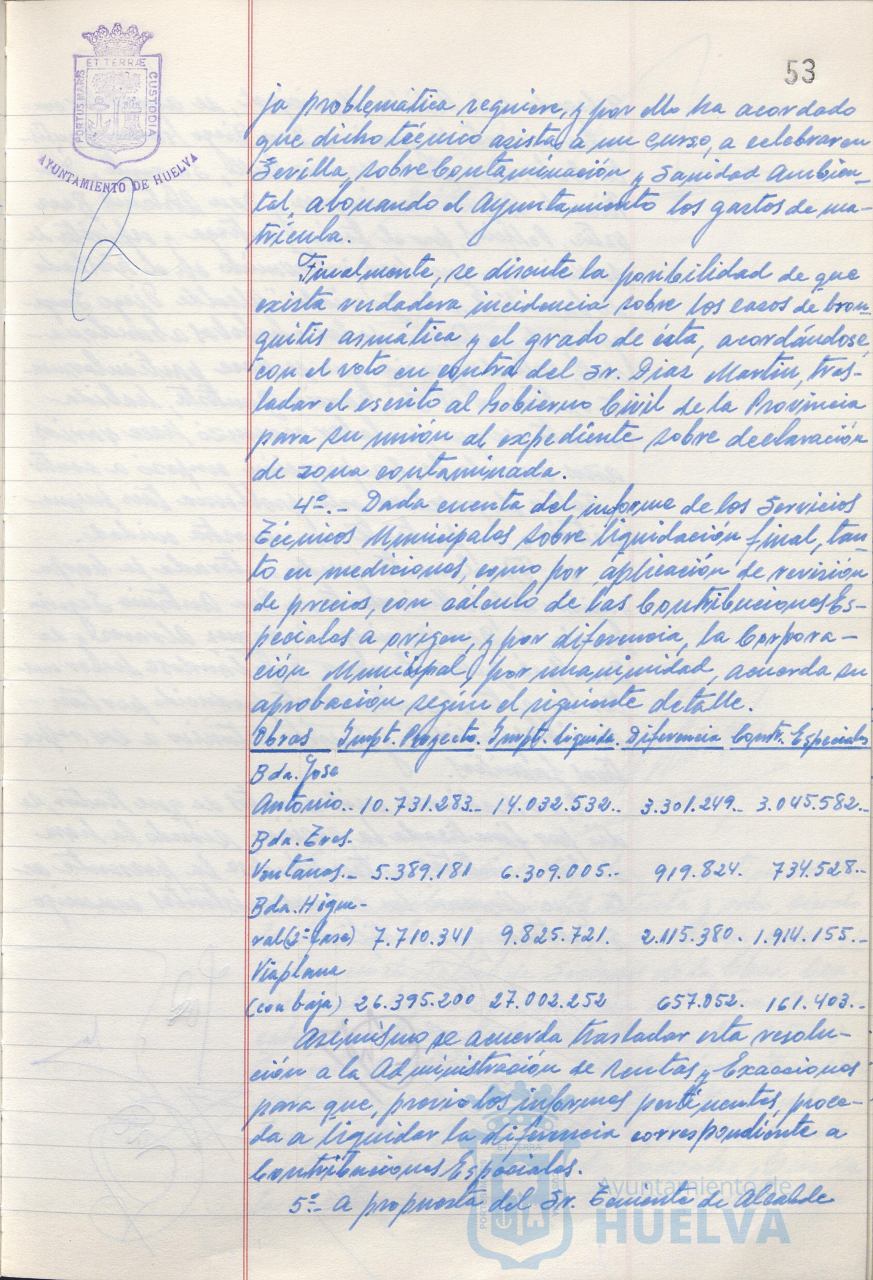 53
ET TERRÆ
PORTUS MARIS
CUSTODIA
AYUNTAMIENTO DE HUELVA
ja problemática requiere, y por ello ha acordado
que dicho técnico asista a un curso, a celebrar en
Sevilla, sobre Contaminación y Sanidad Ambien-
tal, abonando el Ayuntamiento los gastos de ma-
trícula.
Finalmente, se discute la posibilidad de que
exista verdadera incidencia sobre los casos de bron-
quitis asmática y el grado de ésta, acordándose,
con el voto en contra del Sr. Diaz Martín, tras-
ladar el escrito al Gobierno Civil de la Provincia
para su unión al expediente sobre declaración
de zona contaminada.
4º.- Dada cuenta del informe de los Servicios
Técnicos Municipales sobre liquidación final, tan-
to en mediciones, como por aplicación de revisión
de precios, con cálculo de las Contribuciones Es-
peciales a origen, y por diferencia, la Corpora-
ción Municipal, por unanimidad, acuerda su
aprobación según el siguiente detalle.
Obras Impt. Proyecto. Impt. Liquida. Diferencia Contr. Especiales
Bda. Jose
Antonio.. 10.731.283.- 14.032.532.- 3.301.249.- 3.045.582.-
Bda. Tres
Ventanas.- 5.389.181 6.309.005.- 919.824. 734.528.-
Bda. Higue-
ral (2ª fase) 7.710.341 9.825.721. 2.115.380. 1.914.155.-
Viaplana
(con baja) 26.395.200 27.002.252 657.052. 161.403.-
Asimismo se acuerda trasladar esta resolu-
ción a la Administración de Rentas y Exacciones
para que, previo los informes pertinentes, proce-
da a liquidar la diferencia correspondiente a
Contribuciones Especiales.
5º- A propuesta del Sr. Teniente de Alcalde
Ayuntamiento de
HUELVA